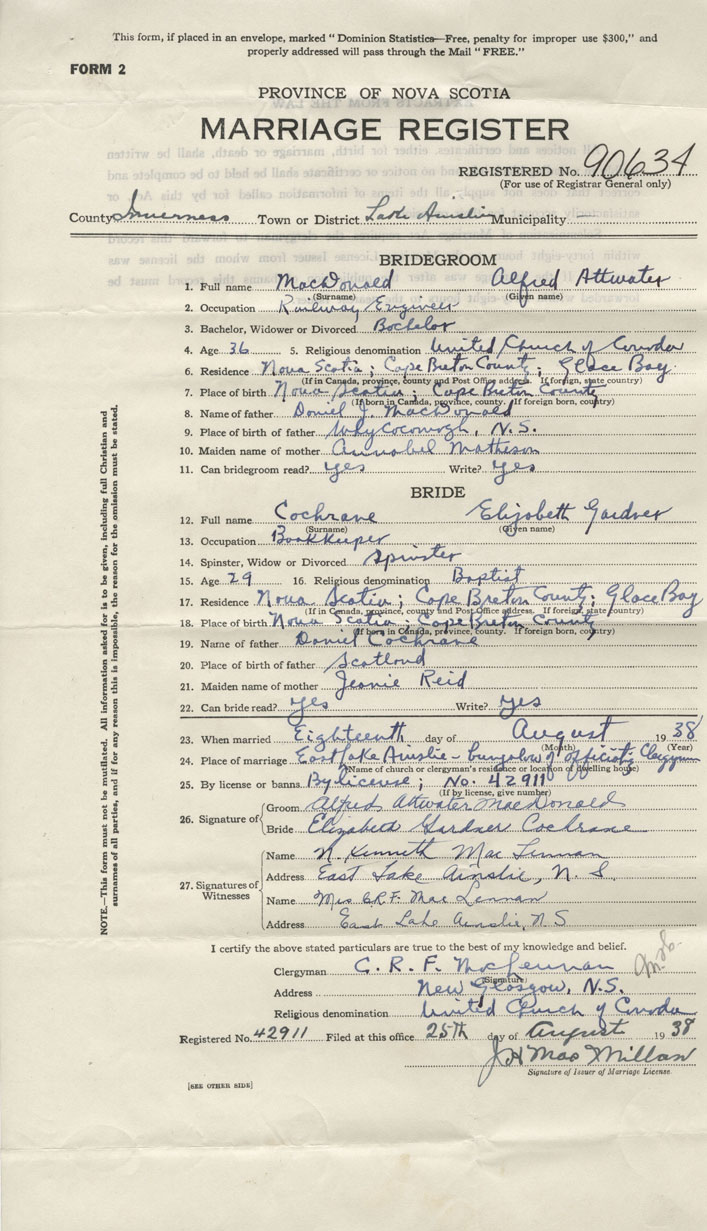 This form, if placed in an envelope, marked "Dominion Statistics—Free, penalty for improper use $300," and
properly addressed will pass through the Mail "FREE."
FORM 2
PROVINCE OF NOVA SCOTIA
MARRIAGE REGISTER
REGISTERED No. 90634
(For use of Registrar General only)
County Inverness Town or District Lake Ainslie Municipality —
BRIDEGROOM
1. Full name MacDonald Alfred Attwater
(Surname) (Given name)
2. Occupation Railway Engineer
3. Bachelor, Widower or Divorced Bachelor
4. Age 36 5. Religious denomination United Church of Canada
6. Residence Nova Scotia; Cape Breton County; Glace Bay.
(If in Canada, province, county and Post Office address. If foreign, state country)
7. Place of birth Nova Scotia; Cape Breton County
(If born in Canada, province, county. If foreign born, country)
8. Name of father Daniel J. MacDonald
9. Place of birth of father Whycocomagh, N.S.
10. Maiden name of mother Annabel Matheson
11. Can bridegroom read? yes Write? yes
BRIDE
12. Full name Cochrane Elizabeth Gardner
(Surname) (Given name)
13. Occupation Bookkeeper
14. Spinster, Widow or Divorced Spinster
15. Age 29 16. Religious denomination Baptist
17. Residence Nova Scotia; Cape Breton County; Glace Bay
(If in Canada, province, county and Post Office address. If foreign, state country)
18. Place of birth Nova Scotia; Cape Breton County
(If born in Canada, province, county. If foreign born, country)
19. Name of father Daniel Cochrane
20. Place of birth of father Scotland
21. Maiden name of mother Jeanie Reid
22. Can bride read? yes Write? yes
23. When married Eighteenth day of August 1938
(Month) (Year)
24. Place of marriage East Lake Ainslie - bungalow of officiatg Clergyman
(Name of church or clergyman's residence or location of dwelling house)
25. By license or banns By license; No. 42911
(If by license, give number)
26. Signature of
Groom Alfred Attwater MacDonald
Bride Elizabeth Gardner Cochrane
27. Signatures of Witnesses
Name N. Kenneth MacLennan
Address East Lake Ainslie, N.S.
Name Mrs C.R.F. MacLennan
Address East Lake Ainslie, N.S
I certify the above stated particulars are true to the best of my knowledge and belief.
Clergyman C. R. F. MacLennan
(Signature)
Address New Glasgow, N.S.
Religious denomination United Church of Canada
Registered No. 42911 Filed at this office 25th day of August 1938
J H MacMillan
Signature of Issuer of Marriage License.
[SEE OTHER SIDE]
NOTE.—This form must not be mutilated. All information asked for is to be given, including full Christian and
surnames of all parties, and if for any reason this is impossible, the reason for the omission must be stated.